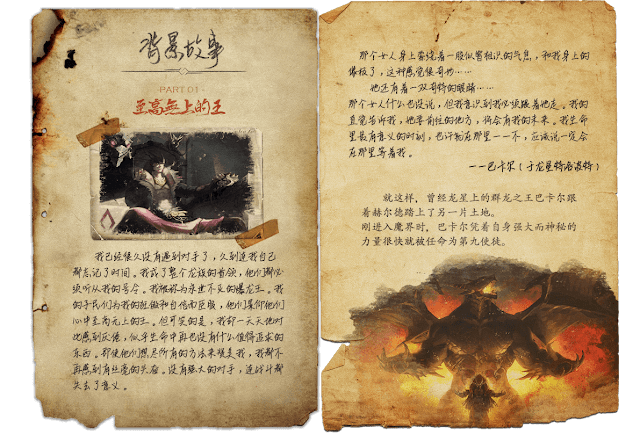 背景故事
PART 01
至高無上的王
我已经很久没有遇到对手了，久到连我自己
都忘记了时间。我成了整个龙族的首领，他们都必
须听从我的号令。我被称为永世不灭的爆龙王。我
的子民们为我的
他们
心中至高无上的王。但可笑的是，我却一天天地对
此感到厌倦，似乎生命中再也没有什么值得追求的
东西。即使他们想尽所有的方法来
我，我都不
再感到有丝毫的
。没有强大的对手，连战斗都
失去了意义。
那个女人身上萦绕着一股似曾相识的气焦，和我身上的
很
了，这种感觉很奇妙……
她还有着一双奇特的眼睛……
那个女人什么也没说，但我意识到我必须跟着她走。我的
直觉告诉我，她要前往的地方，将会有我的未来。我生命
里最有意义的时刻，也许就在那里——不，应该说一定会
在那里等着我。
——巴卡尔（于龙皇特洛波特）
就这样，曾经龙星上的群龙之王巴卡尔跟
着赫尔德踏上了另一片土地。
刚进入魔界时，巴卡尔凭着自身强大而神秘的
力量很快就被任命为第九使徒。